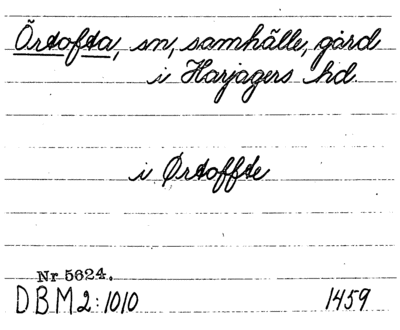 Örtofta, sn, samhälle, gård
i Harjagers hd.
i Ørtoffte
Nr 5624.
DBM2:1010 1459